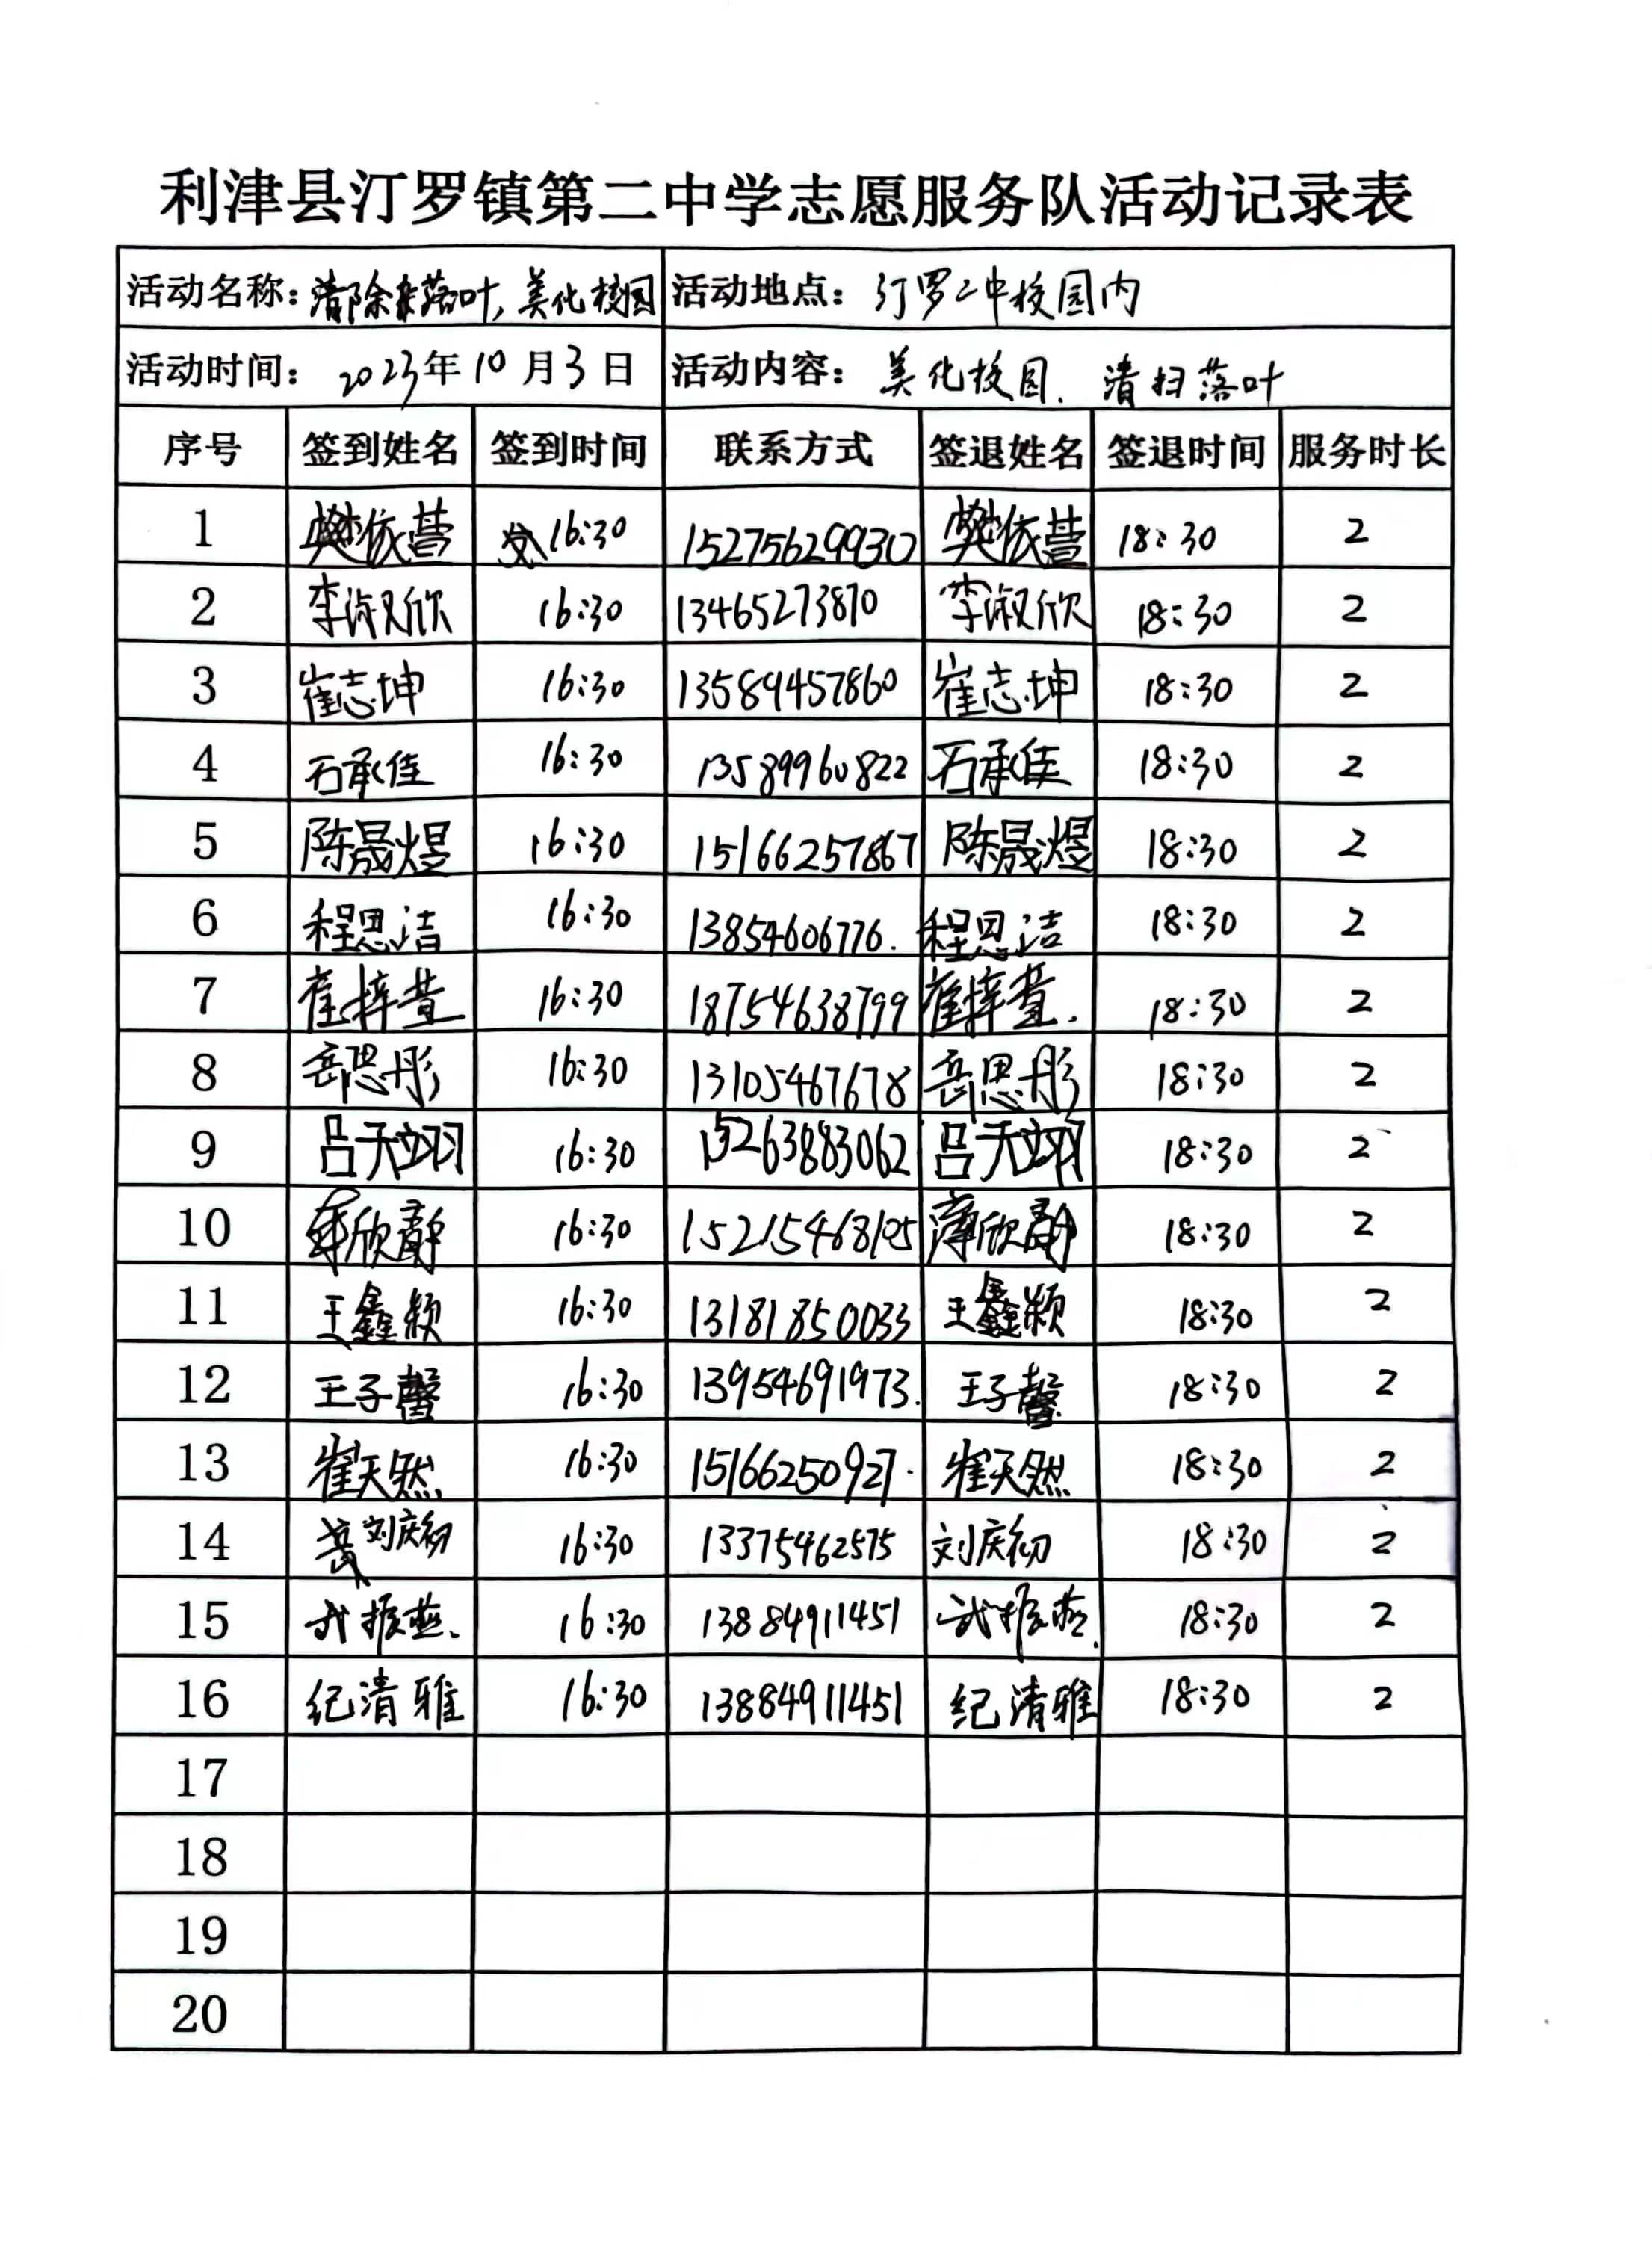 利津县汀罗镇第二中学志愿服务队活动记录表
活动名称：清除落叶，美化校园 活动地点：汀罗二中校园内
活动时间：2023年10月3日 活动内容：美化校园、清扫落叶
序号 签到姓名 签到时间 联系方式 签退姓名 签退时间 服务时长
1 樊依萱 16:30 15275629930 樊依萱 18:30 2
2 李淑欣 16:30 13465273870 李淑欣 18:30 2
3 崔志坤 16:30 13589457860 崔志坤 18:30 2
4 石承佳 16:30 13589960822 石承佳 18:30 2
5 陈晟煜 16:30 15166257867 陈晟煜 18:30 2
6 程思洁 16:30 13854606776. 程思洁 18:30 2
7 崔梓萱 16:30 18754638799 崔梓萱. 18:30 2
8 岳思彤 16:30 13105467678 岳思彤 18:30 2
9 吕天翊 16:30 15263883062 吕天翊 18:30 2
10 16:30 15215468105 薄欣蔚 18:30 2
11 王鑫颖 16:30 13181850033 王鑫颖 18:30 2
12 王子馨 16:30 13954691973. 王子馨 18:30 2
13 崔天然 16:30 15166250927. 崔天然 18:30 2
14 刘庆初 16:30 13375462575 刘庆初 18:30 2
15 武振燕. 16:30 13884911451 武振燕. 18:30 2
16 纪清雅 16:30 13884911451 纪清雅 18:30 2
17
18
19
20